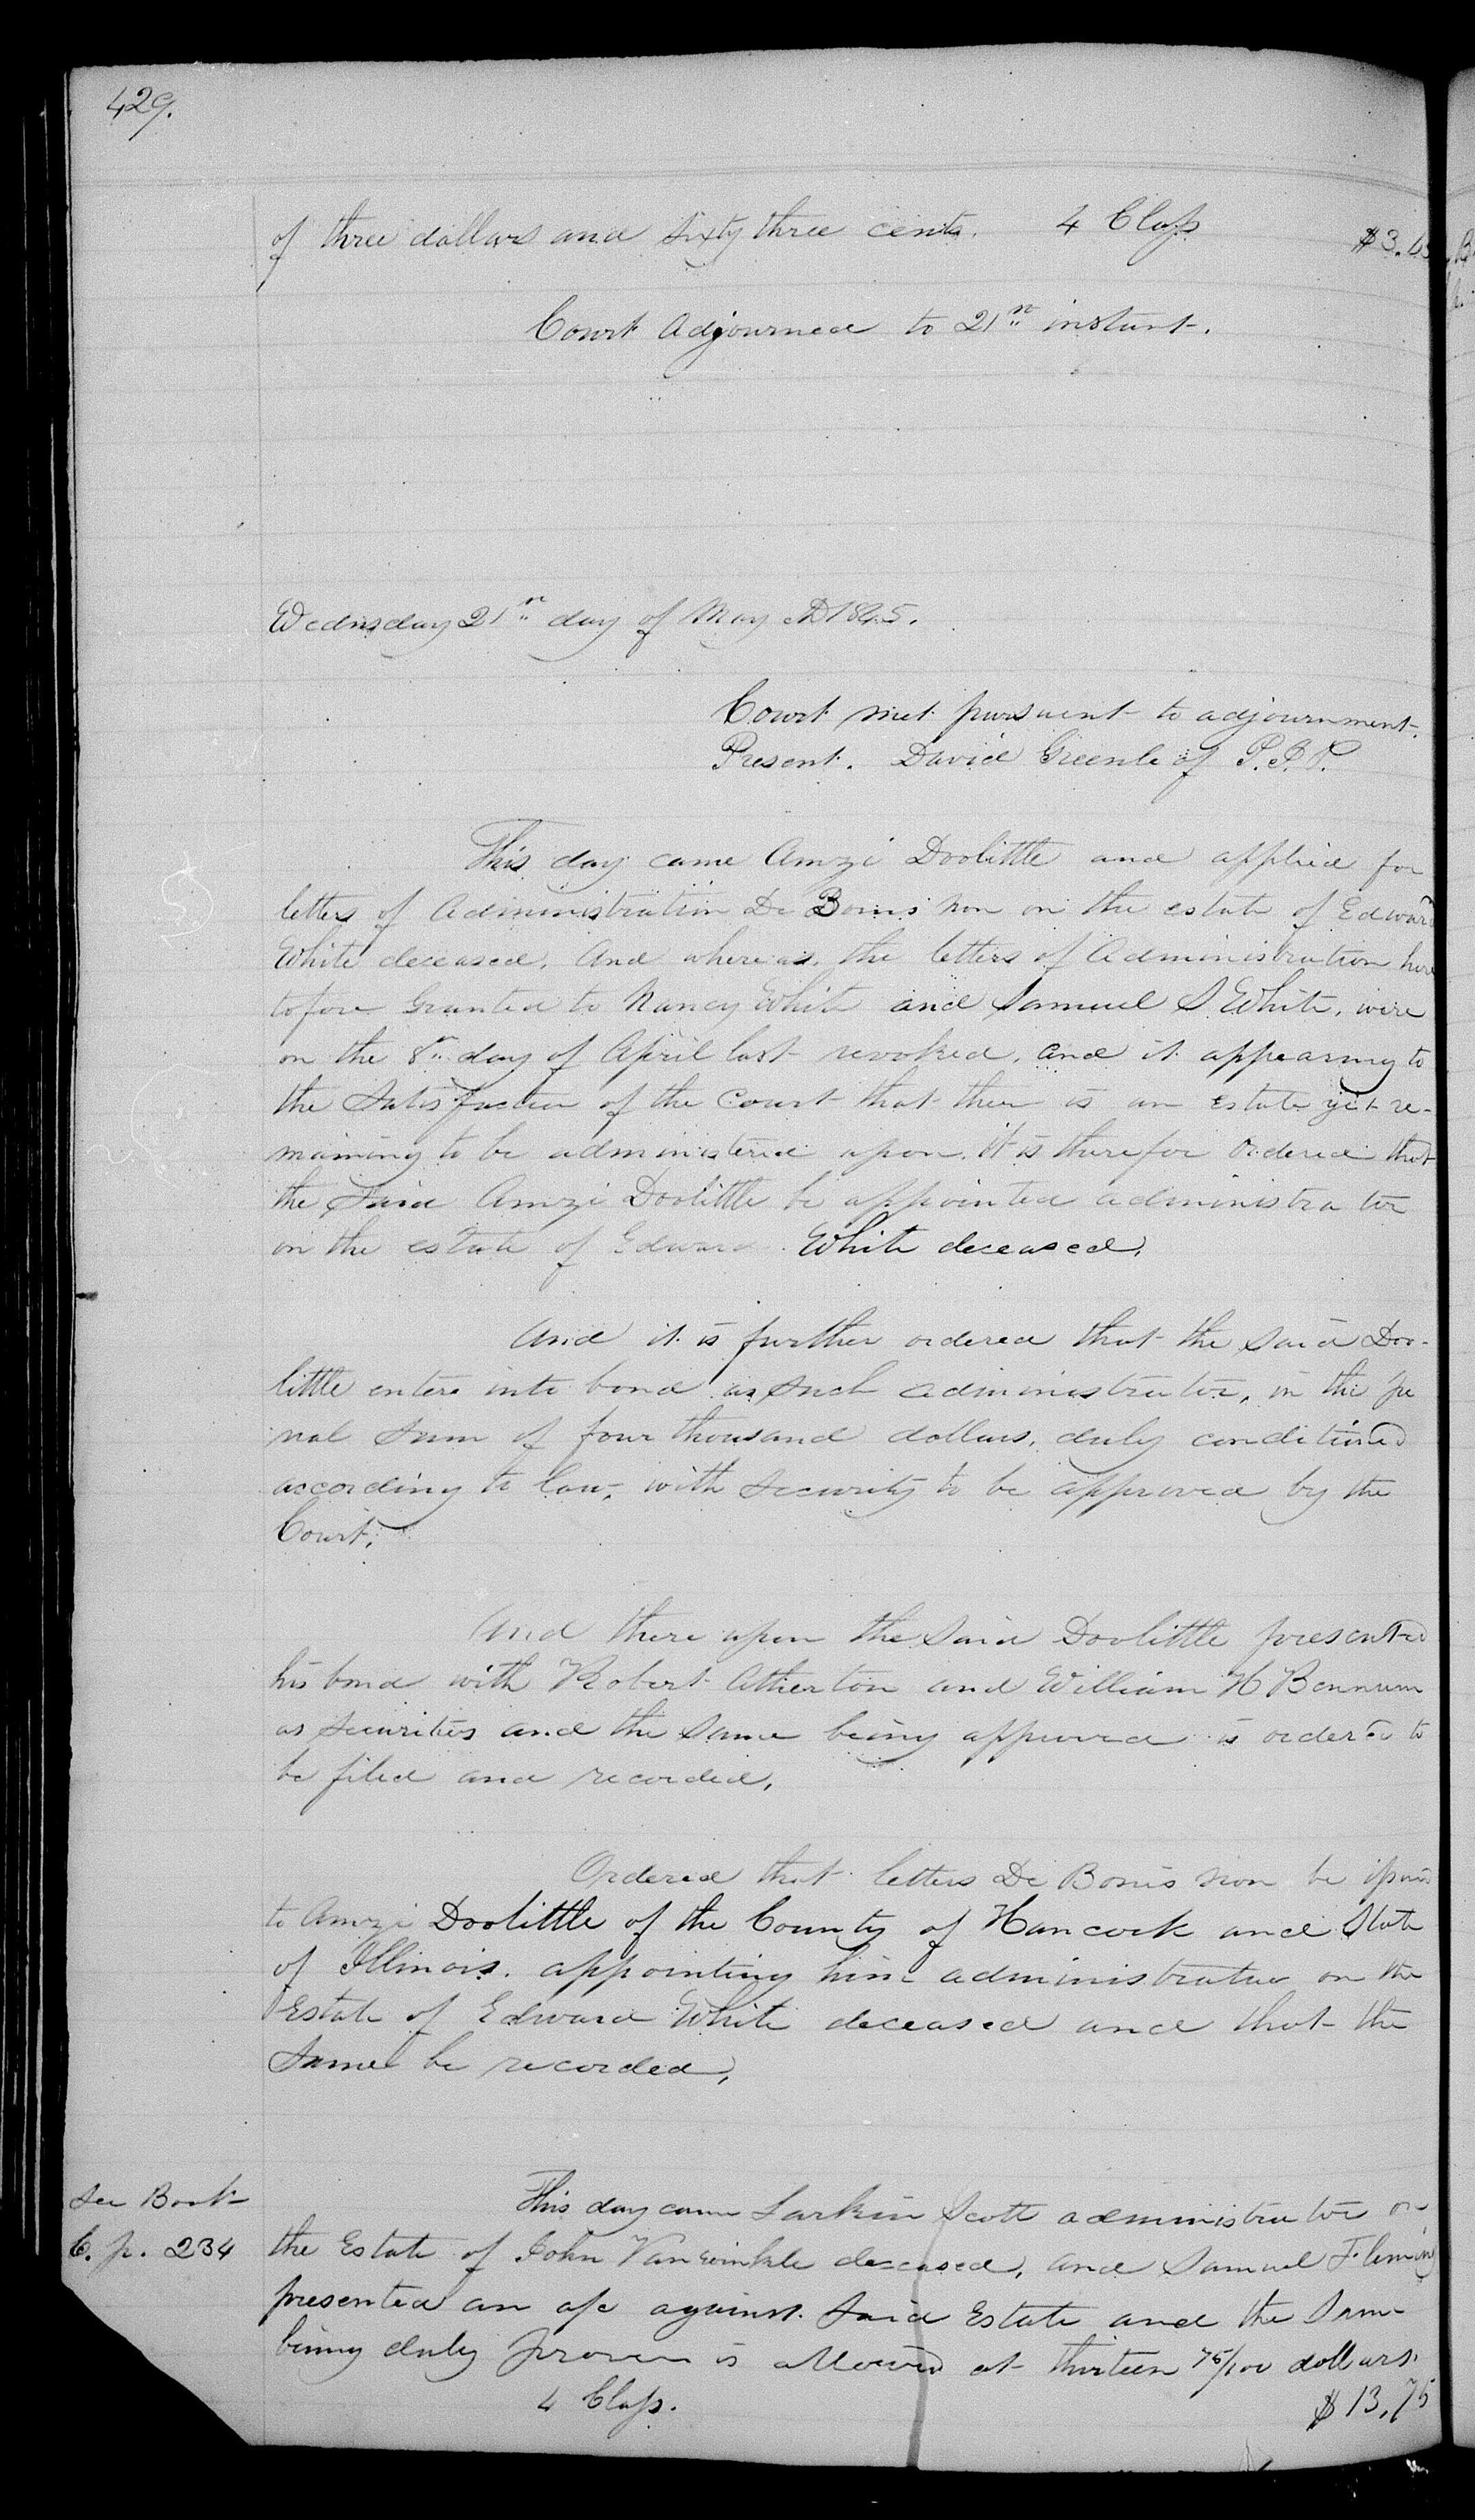 429.
of three dollars and sixty three cents. 4 Class $3.63
Court Adjourned to 21st instant.
Wednsday 21st day of May AD 1845.
Court met pursuent to adjournment.
Present. David Greenleaf P. J. P.
This day came Amzi Doolittle and applied for
letters of Administration De Bonis Non on the estate of Edward
White deceased. And whereas the letters of Administration here
tofore Granted to Nancy White and Samuel S. White, were
on the 8th day of April last revoked, and it appearing to
the Satisfaction of the Court that there is an Estate yet re-
maining to be administered upon. it is therefor Ordered that
the Said Amzi Doolittle be appointed administrator
on the estate of Edward White deceased.
And it is further ordered that the Said Doo-
little enters into bond as Such administrator, in the pe
nal Sum of four thousand dollars, duly conditioned
according to law, with Security to be approved by the
Court.
And there upon the Said Doolittle presented
his bond with Robert Atherton and William H Bennum
as Securities and the Same being approved is ordered to
be filed and recorded.
Ordered that letters De Bonis non be issued
to Amzi Doolittle of the County of Hancock and State
of Illinois. appointing him administrator on the
Estate of Edward White deceased and that the
Same be recorded,
See Book
C. p. 234
This day came Larkin Scott administrator on
the Estate of John Vanwinkle deceased, and Samuel Fleming
presented an a/c against Said Estate and the Same
being duly proven is allowed at thirteen 75/100 dollars.
4 Class. $13,75